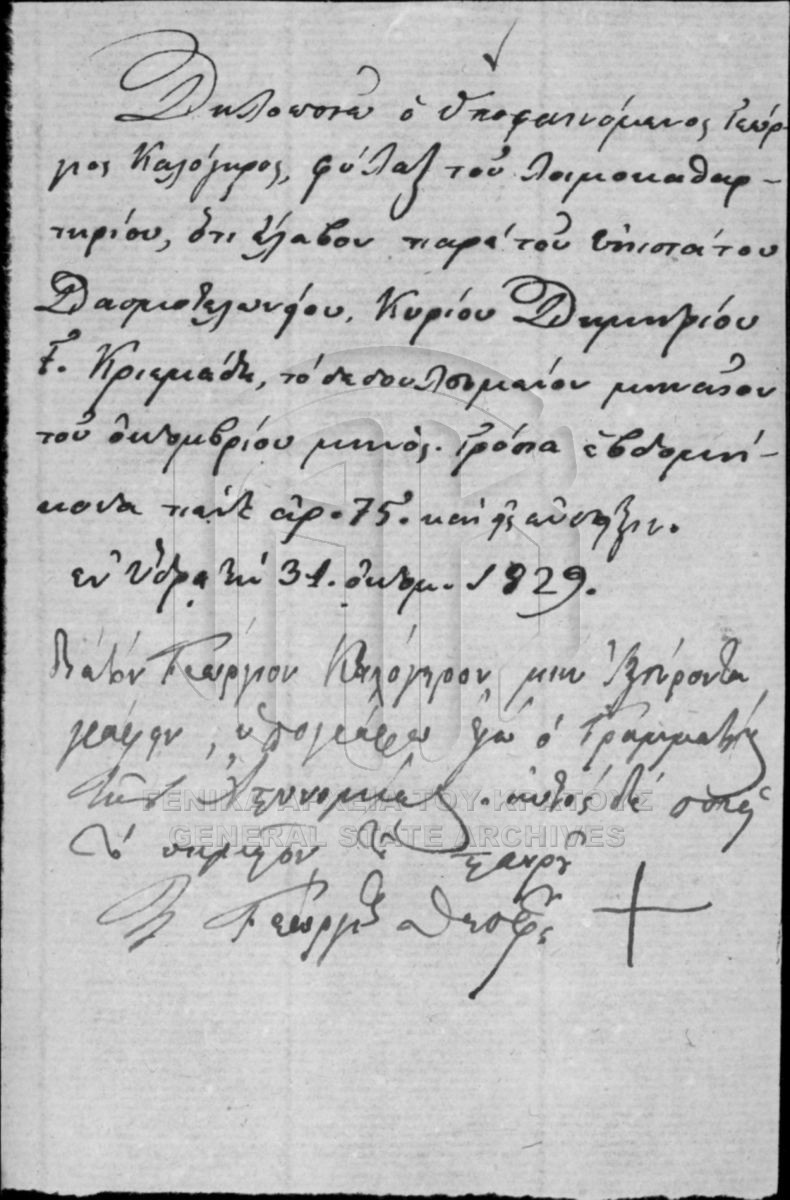 Δηλοποιῶ ὁ ὑποφαινόμενος Γεώρ-
γιος Καλόγηρος, φύλαξ τοῦ λοιμοκαθαρ-
τηρίου, ὅτι ἔλαβον παρὰ τοῦ ἐπιστάτου
Δασμοτελωνείου, Κυρίου Δημητρίου
Γ. Κριεμάδη, τὸ δεδουλευμένον μηνιαῖον
τοῦ ὀκτομβρίου μηνὸς. Γρόσια ἑβδομή-
κοντα πέντε ἀρ. 75. καὶ εἰς
ἐν Ὕδρᾳ τῇ 31. ὀκτομ. 1829.
διὰ τὸν Γεώργιον Καλόγηρον μὴν ἠξεύροντα
γράφειν, ὑπογράφω ἐγὼ ὁ Γραμματεὺς
τῆς Ἀστυνομίας. αὐτὸς δὲ
τὸ σημεῖον τοῦ Σταυροῦ
Γεώργιος
ΓΕΝΙΚΑ ΑΡΧΕΙΑ ΤΟΥ ΚΡΑΤΟΥΣ
GENERAL STATE ARCHIVES